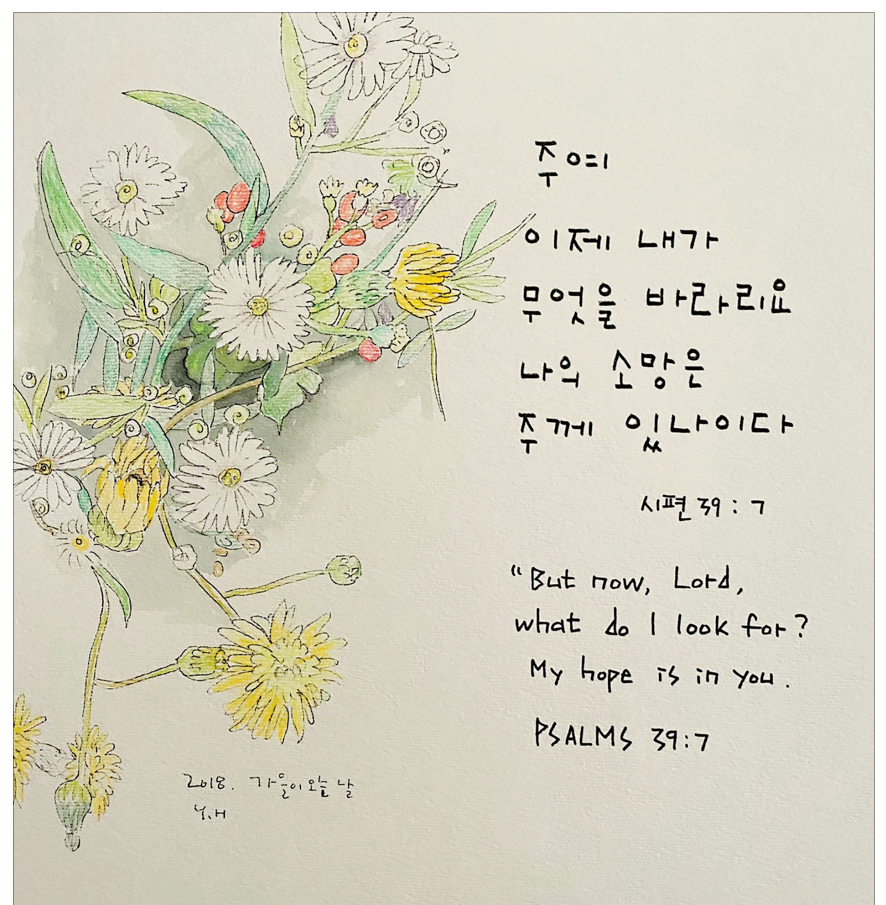 주여
이제 내가
무엇을 바라리요
나의 소망은
주께 있나이다
시편 39 : 7
"But now, Lord,
what do I look for?
My hope is in you.
PSALMS 39:7
2018. 가을이 오는 날
Y.H